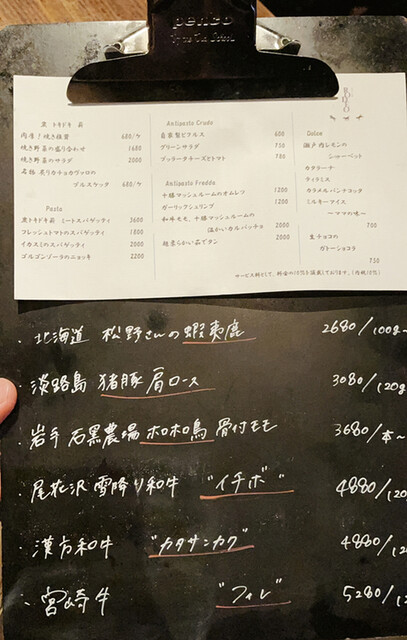 penco
黒 トキドキ 莉
肉厚！焼き椎茸 680/ケ
焼き野菜の盛り合わせ 1680
焼き野菜のサラダ 2000
名物 炙りカチョカヴァロの
ブルスケッタ 680/ケ
Pasta
黒トキドキ莉 ミートスパゲッティ 3600
フレッシュトマトのスパゲッティ 1800
イカスミのスパゲッティ 2000
ゴルゴンゾーラのニョッキ 2200
Antipasto Crudo
自家製ピクルス 600
グリーンサラダ 750
ブッラータチーズとトマト 780
Antipasto Freddo
マッシュルームのオムレツ 1200
ガーリックシュリンプ 1200
和牛モモ、マッシュルームの
温かいカルパッチョ 2000
超柔らかい茹でタン 2000
Dolce
瀬戸内レモンの
シャーベット
カタラーナ
ティラミス
カラメルパンナコッタ
ミルキーアイス
〜ママの味〜
700
生チョコの
ガトーショコラ
750
サービス料として、料金の10%を頂戴しております。(内税10%)
・北海道 松野さんの蝦夷鹿 2680/100g〜
・淡路島 猪豚 肩ロース 3080/120g
・岩手 石黒農場 ホロホロ鳥 骨付モモ 3680/本〜
・尾花沢 雪降り和牛 "イチボ" 4880/120
・漢方和牛 "カタサンカク" 4880/12
・宮崎牛 "フィレ" 5280/12